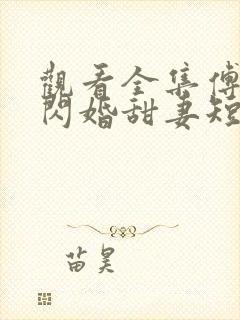 觀看全集傅
閃婚甜妻短
苗昊